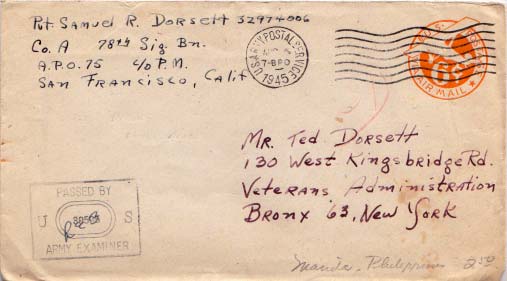 Pvt. Samuel R. Dorsett 32974006
Co. A 78th Sig. Bn.
A.P.O. 75 c/o P.M.
San Francisco, Calif
U.S. ARMY POSTAL SERVICE
7-BPO
1945
VIA AIR MAIL
Mr. Ted. Dorsett
130 West Kingsbridge Rd.
Veterans Administration
Bronx 63, New York
PASSED BY
U S
ARMY EXAMINER
Philippines 2.50